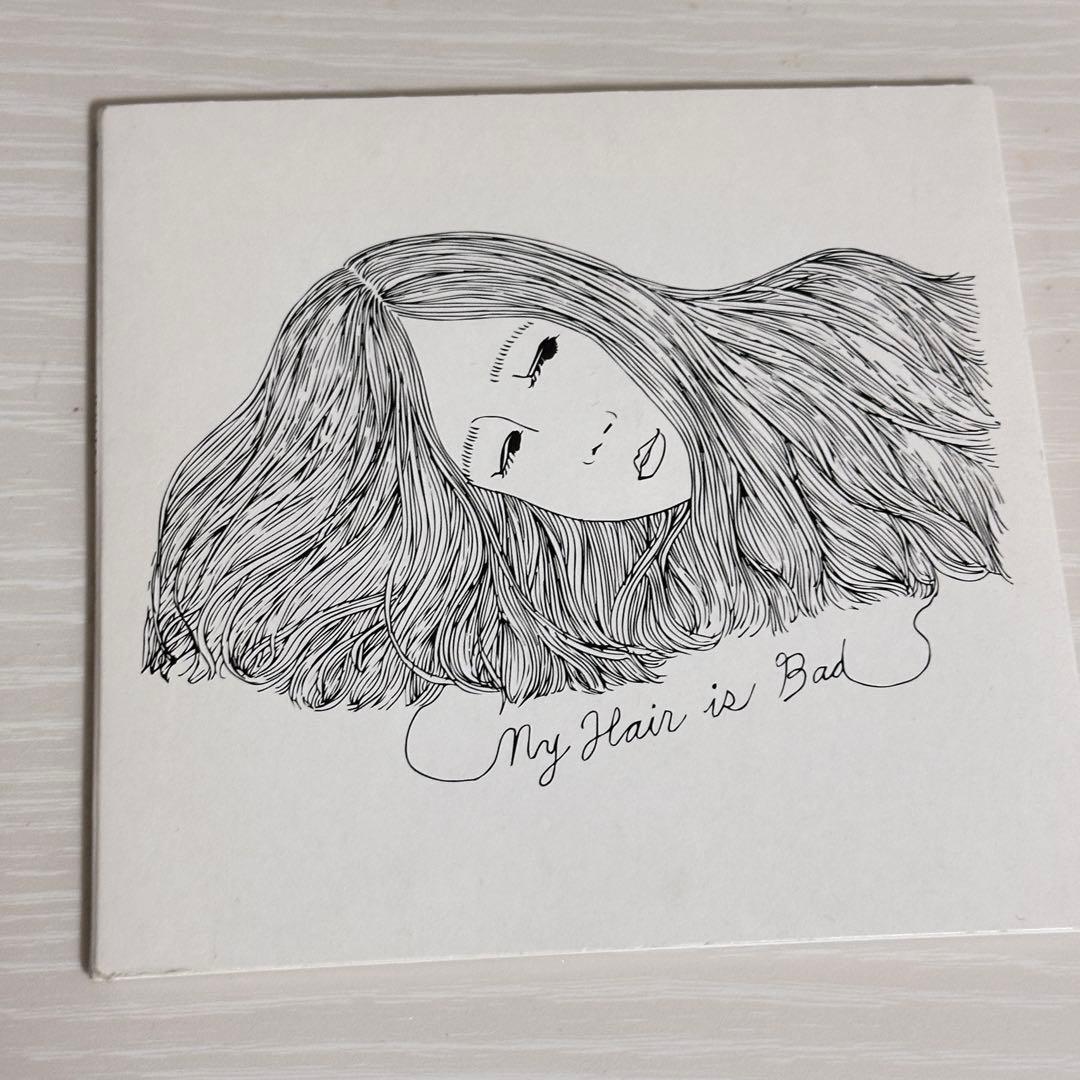 My Hair is Bad